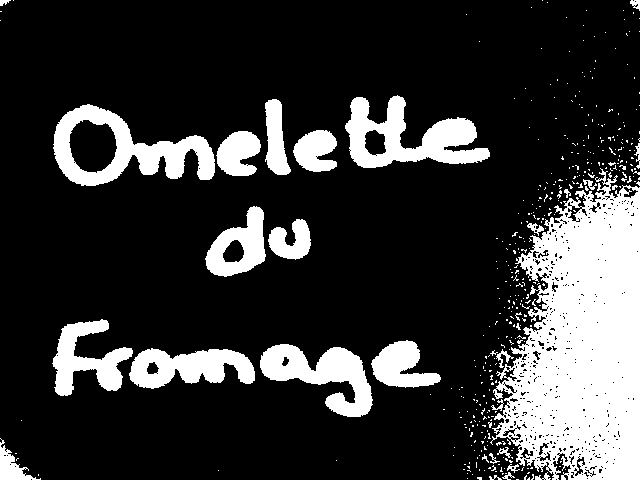 Omelette
du
Fromage